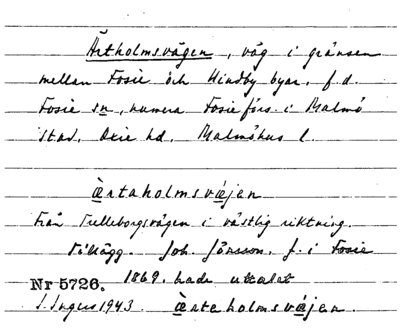 Ärtholmsvägen, väg i gränsen
mellan Fosie och Hindby byar, f.d.
Fosie sn, numera Fosie förs. i Malmö
stad, Oxie hd, Malmöhus l.
ærtaholmsvæjen
Från Trelleborgsvägen i västlig riktning.
Tillägg. Joh. Jönsson, f. i Fosie
Nr 5726. 1869. hade uttalat
S. Ingers 1943. ærteholmsvæjen.